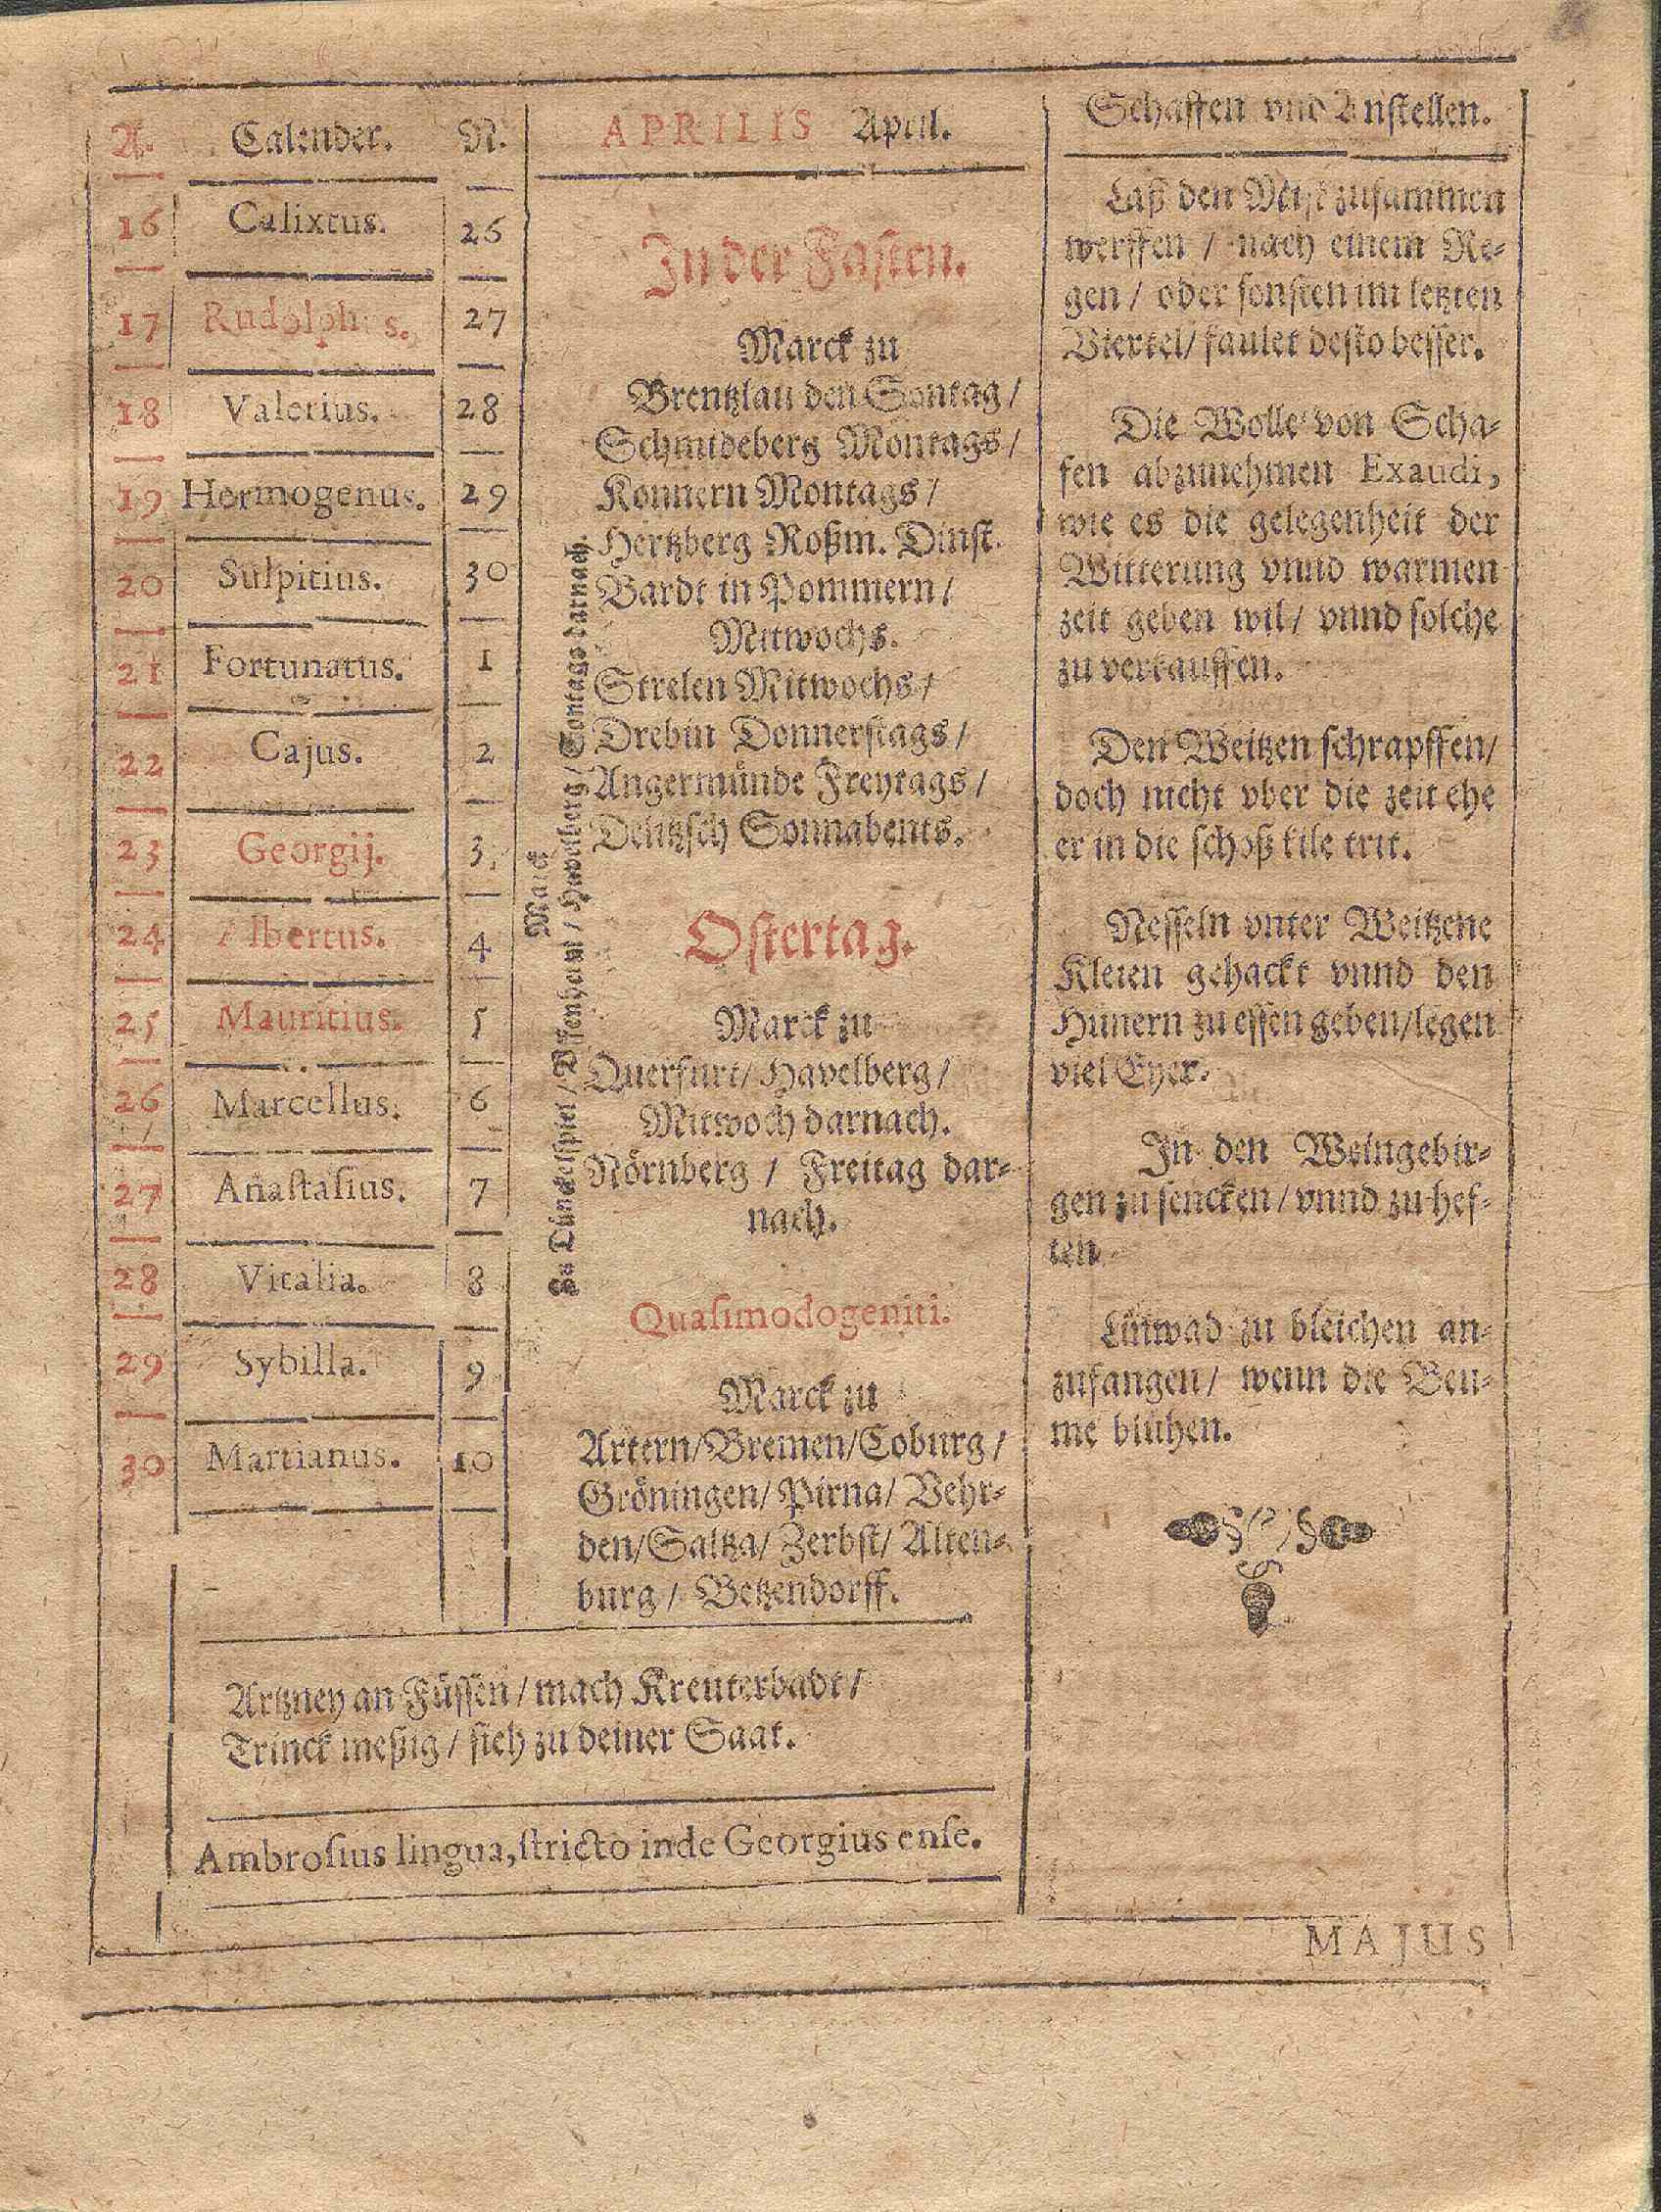 A. Calender. N.
16 Calixtus. 26
17 Rudolphus. 27
18 Valerius. 28
19 Hermogenus. 29
20 Sulpitius. 30
21 Fortunatus. 1
22 Cajus. 2
23 Georgij. 3.
24 Albertus. 4
25 Mauritius. 5
26 Marcellus. 6
27 Anaſtaſius. 7
28 Vitalia. 8
29 Sybilla. 9
30 Martianus. 10
APRILIS April.
In der Faſten.
Marck zu
Brentzlau den Sontag /
Schmideberg Montags /
Konnern Montags /
Hertzberg Roßm. Dinſt.
Bardt in Pommern /
Mitwochs.
Strelen Mitwochs /
Drebin Donnerſtags /
Angermünde Freytags /
Delitzſch Sonnabents.
Marck
Zu Dünckelſpiel / Offenheim / Havelberg / Sontags darnach.
Oſtertag.
Marck zu
Querfurt / Havelberg /
Mitwoch darnach.
Nörnberg / Freitag dar-
nach.
Quaſimodogeniti.
Marck zu
Artern / Bremen / Coburg /
Gröningen / Pirna / Vehr-
den / Saltza / Zerbſt / Alten-
burg / Betzendorff.
Artzney an Füſſen / mach Kreuterbadt /
Trinck meßig / ſieh zu deiner Saat.
Ambroſius lingua, ſtricto inde Georgius enſe.
Schaffen vnd Anſtellen.
Laß den Miſt zuſammen
werffen / nach einem Re-
gen / oder ſonſten im letzten
Viertel / faulet deſto beſſer.
Die Wolle von Scha-
fen abzunehmen Exaudi,
wie es die gelegenheit der
Witterung vnnd warmen
zeit geben wil / vnnd ſolche
zu verkauffen.
Den Weitzen ſchrapffen /
doch nicht vber die zeit ehe
er in die ſchoß kile trit.
Neſſeln vnter Weitzene
Kleien gehackt vnnd den
Hunern zu eſſen geben / legen
viel Eyer.
In den Weingebir-
gen zu ſencken / vnnd zu hef-
ten
Linwad zu bleichen an-
zufangen / wenn die Beu-
me bluhen.
MAJUS